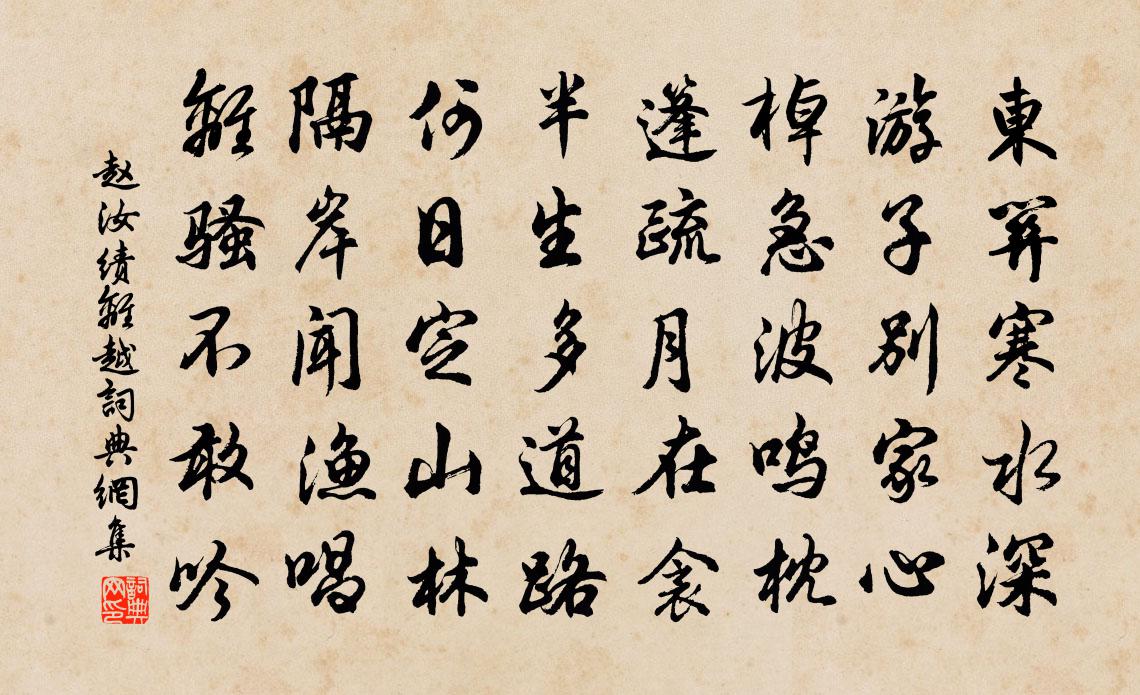 東關寒水深
游子别家心
棹急波鸣枕
蓬疏月在衾
半生多道路
何日定山林
隔岸聞漁唱
離騷不敢吟
赵汝績離越詞典網集
詞典
网印